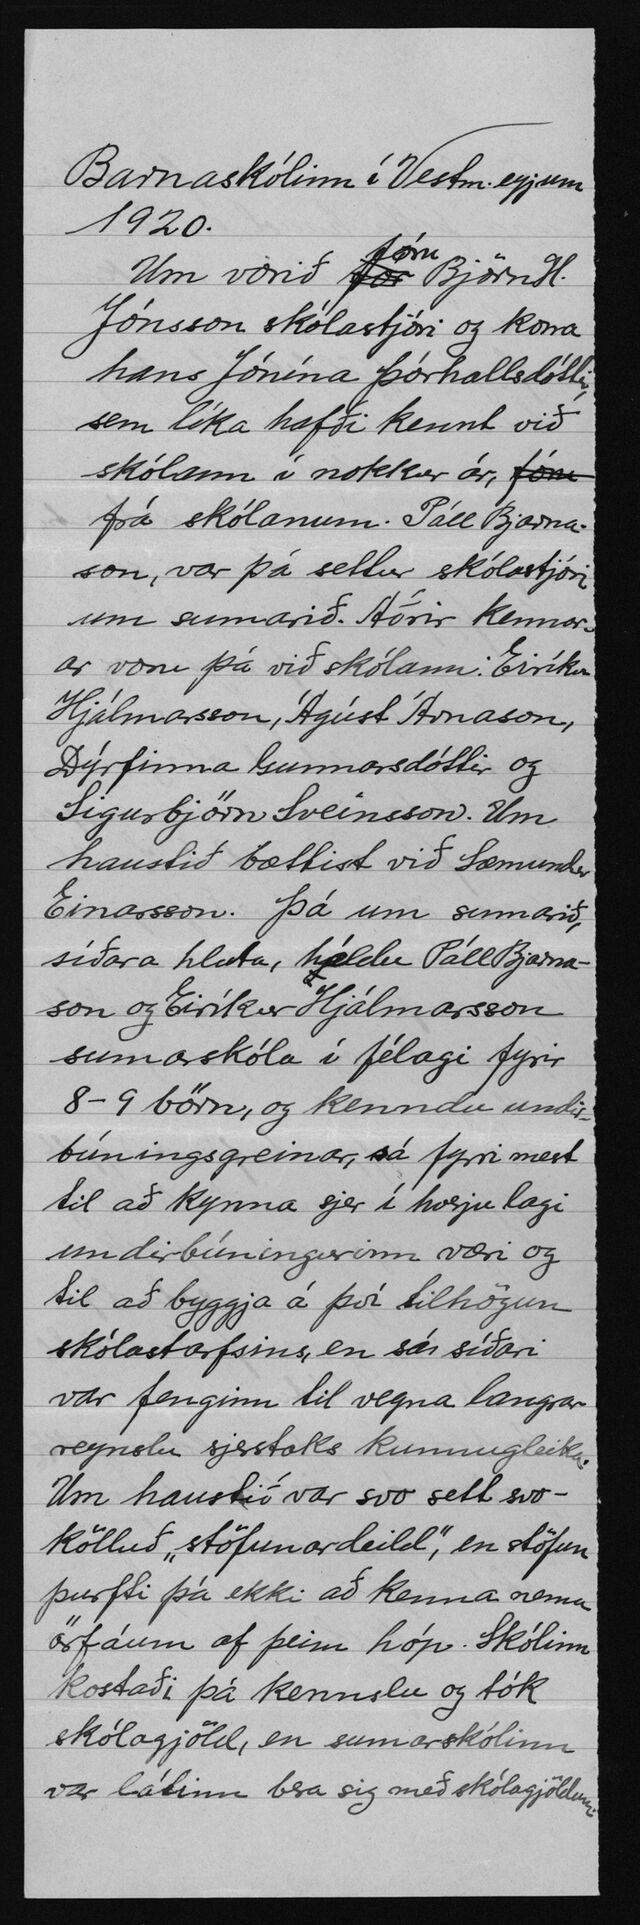 Barnaskólinn í Vestm.eyjum
1920.
Um vorið fóru Björn H.
Jónsson skólastjóri og kona
hans Jónína Þórhallsdóttir,
sem líka hafði kennt við
skólann í nokkur ár, fóru
frá skólanum. Páll Bjarna-
son, var þá settur skólastjóri
um sumarið. Aðrir kennar-
ar voru þá við skólann: Eiríkur
Hjálmarsson, Ágúst Árnason,
Dýrfinna Gunnarsdóttir og
Sigurbjörn Sveinsson. Um
haustið bættist við Sæmundur
Einarsson. Þá um sumarið,
síðara hluta, héldu Páll Bjarna-
son og Eiríkur Hjálmarsson
sumarskóla í félagi fyrir
8-9 börn, og kenndu undir-
búningsgreinar, sá fyrri mest
til að kynna sjer í hverju lagi
undirbúningurinn væri og
til að byggja á því tilhögun
skólastarfsins, en sá síðari
var fenginn til vegna langrar
reynslu sjerstaks kunnugleika.
Um haustið var svo sett svo-
kölluð "stöfunardeild", en stöfun
þurfti þá ekki að kenna nema
örfáum af þeim hóp. Skólinn
kostaði þá kennslu og tók
skólagjöld, en sumarskólinn
var látinn bera sig með skólagjöldum.